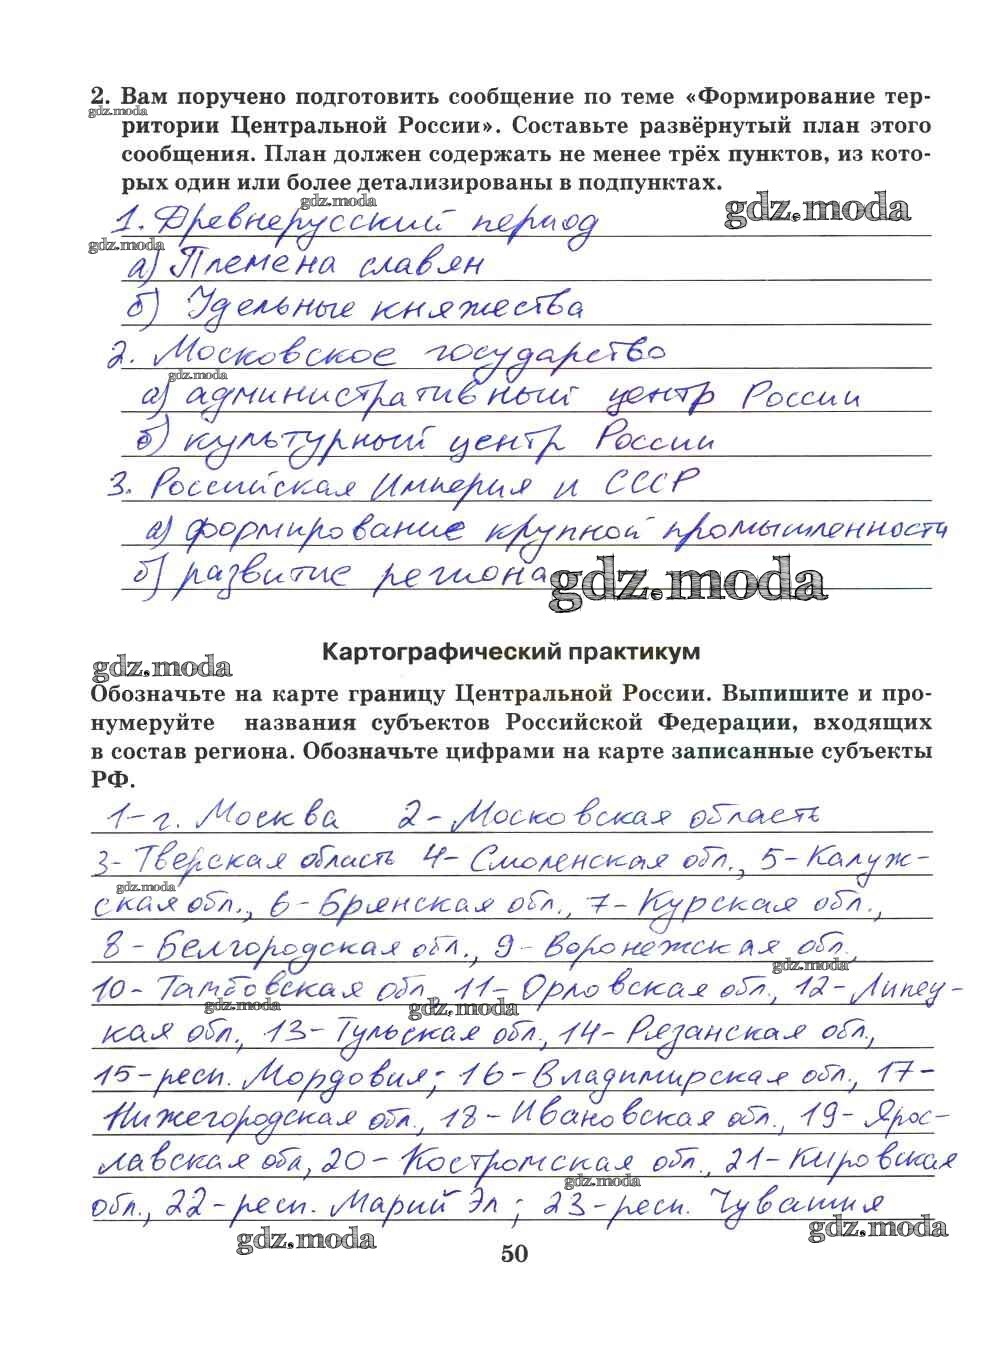 2. Вам поручено подготовить сообщение по теме «Формирование тер-
gdz.moda
ритории Центральной России». Составьте развёрнутый план этого
сообщения. План должен содержать не менее трёх пунктов, из кото-
рых один или более детализированы в подпунктах.
gdz.moda
gdz.moda
1. Древнерусский период
gdz.moda
а) Племена славян
б) Удельные княжества
2. Московское государство
gdz.moda
а) административный центр России
б) культурный центр России
3. Российская Империя и СССР
а) формирование крупной промышленности
б) развитие региона
gdz.moda
Картографический практикум
gdz.moda
Обозначьте на карте границу Центральной России. Выпишите и про-
нумеруйте названия субъектов Российской Федерации, входящих
в состав региона. Обозначьте цифрами на карте записанные субъекты
РФ.
1- г. Москва 2- Московская область
3- Тверская область 4- Смоленская обл., 5- Калуж-
gdz.moda
ская обл., 6- Брянская обл., 7- Курская обл.,
8- Белгородская обл., 9- Воронежская обл.
gdz.moda
10- Тамбовская обл 11- Орловская обл., 12- Липец-
gdz.moda
gdz.moda
кая обл., 13- Тульская обл., 14- Рязанская обл.,
15-респ. Мордовия; 16- Владимирская обл., 17-
Нижегородская обл., 18- Ивановская обл., 19- Ярос-
лавская обл, 20- Костромская обл., 21- Кировская
gdz.moda
обл., 22-респ. Марий Эл; 23-респ. Чувашия
gdz.moda
gdz.moda
50